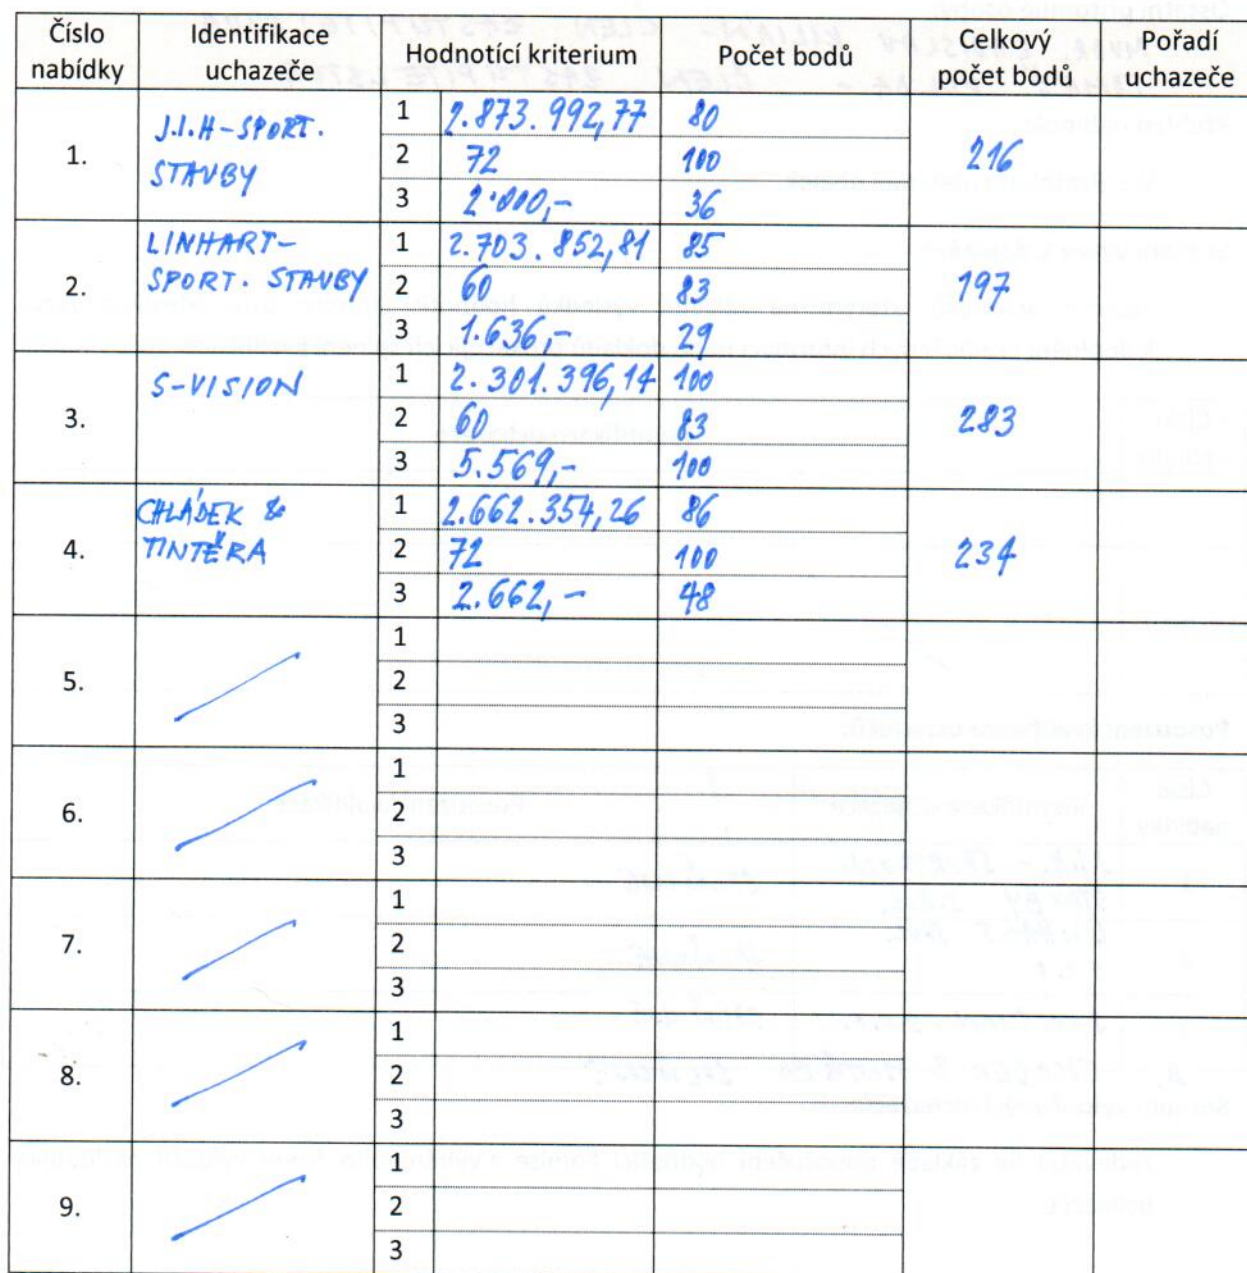 Číslo nabídky Identifikace uchazeče Hodnotící kriterium Počet bodů Celkový počet bodů Pořadí uchazeče
1. J.I.H-SPORT. STAVBY 216
1 2.873.992,77 80
2 72 100
3 2.000,- 36
2. LINHART- SPORT. STAVBY 197
1 2.703.852,81 85
2 60 83
3 1.636,- 29
3. S-VISION 283
1 2.301.396,14 100
2 60 83
3 5.569,- 100
4. CHLÁDEK & TINTĚRA 234
1 2.662.354,26 86
2 72 100
3 2.662,- 48
5.
1
2
3
6.
1
2
3
7.
1
2
3
8.
1
2
3
9.
1
2
3